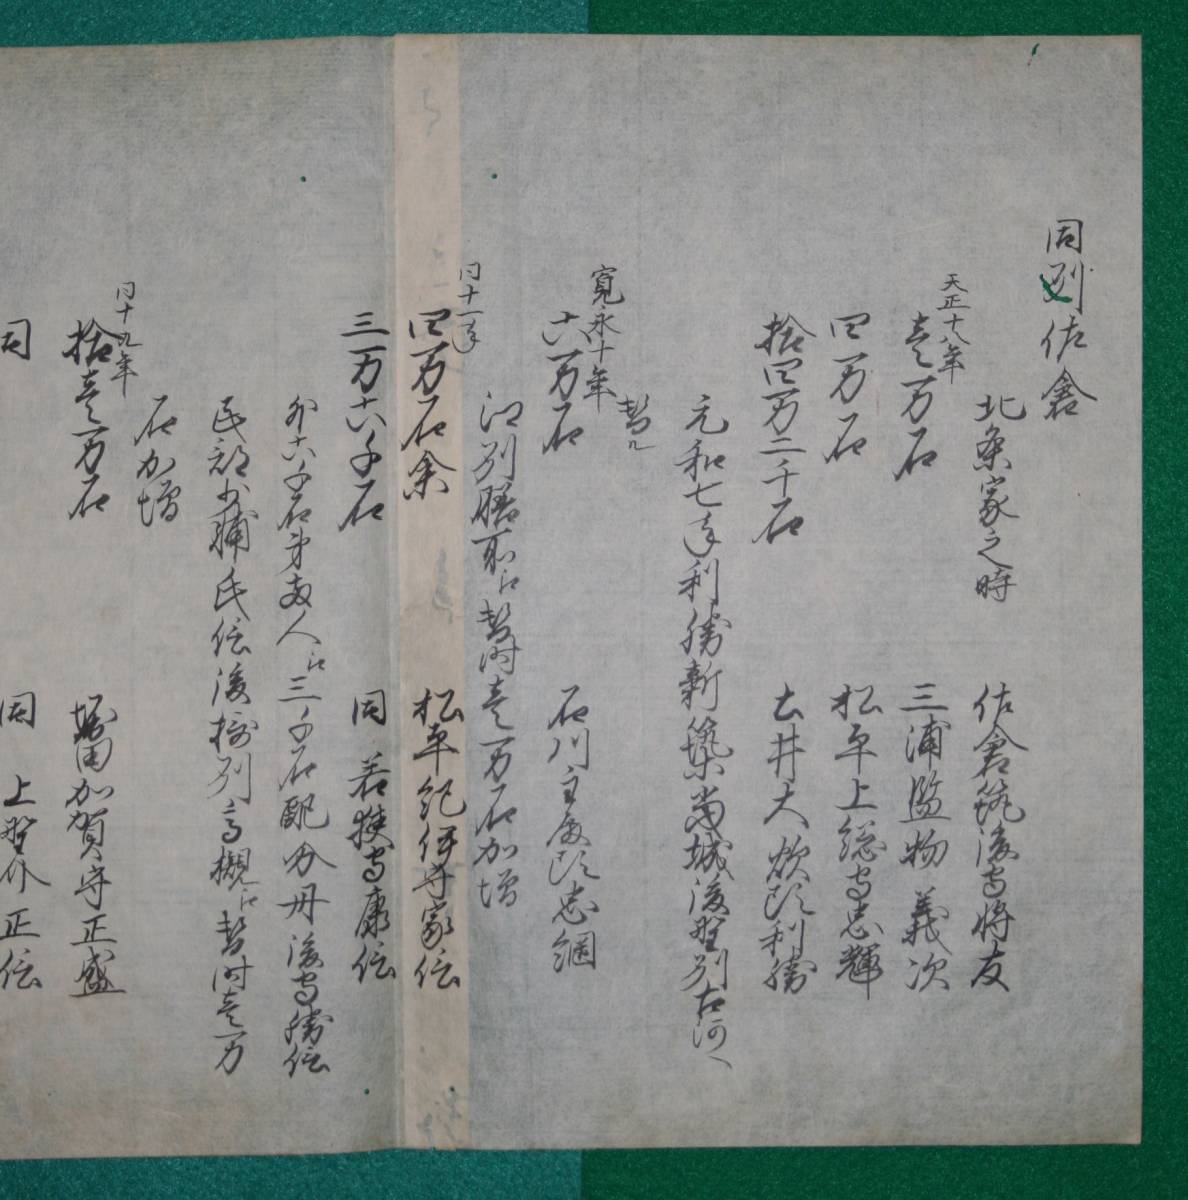 同州佐倉
北条家之時 佐倉筑後守将友
天正十八年
壱万石 三浦監物義次
四万石 松平上総守忠輝
拾四万二千石 土井大炊頭利勝
元和七年利勝新築當城後野州古河へ
替ル
寛永十年
六万石 石川主殿頭忠綱
江州膳所江替時壱万石加増
同十一年
四万石余 松平紀伊守家信
三万六千石 同 若狭守康信
外六千石弟両人江三千石配分丹後守勝信
民部少輔氏信後摂州高槻江替時壱万
石加増
同十九年
拾壱万石 堀田加賀守正盛
同 同 上野介正信